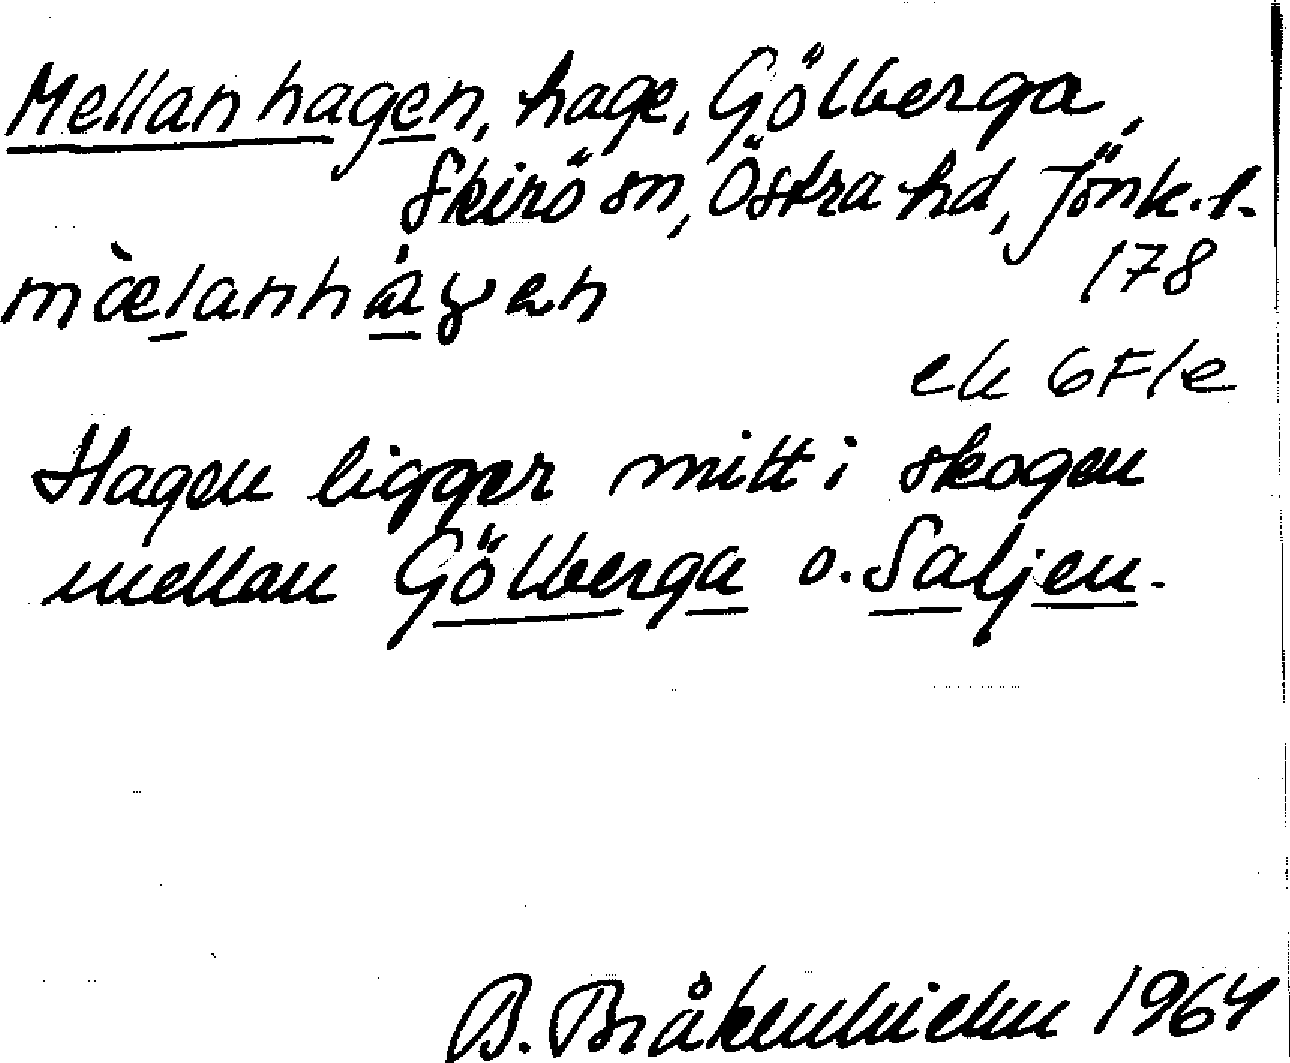 Mellanhagen, hage, Gölberga,
Skirö sn, Östra hd, Jönk. l.
mælanhagen
178
ek 6F1e
Hagen ligger mitt i skogen
mellan Gölberga o. Saljen.
B. Bråkenhielm 1964